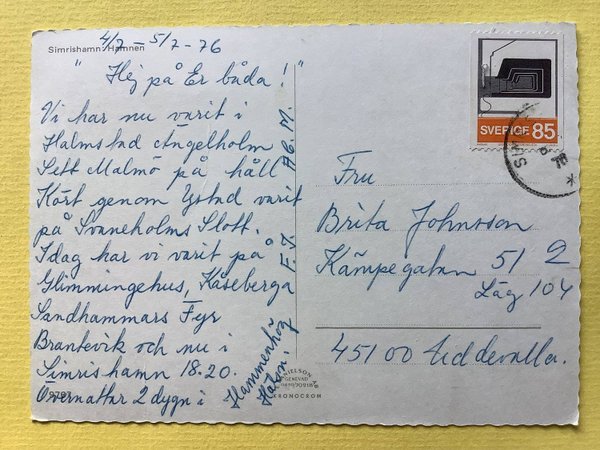 Simrishamn. Hamnen
4/7 - 5/7 - 76
"Hej på Er båda!"
Vi har nu varit i
Halmstad Ängelholm
Sett Malmö på håll
Kört genom Ystad varit
på Svaneholms Slott.
Idag har vi varit på
Glimmingehus, Kåseberga
Sandhammars Fyr
Brantevik och nu i
Simrishamn 18.20.
Övernattar 2 dygn i
Hammenhög
Hälsn.
SVERIGE 85
Fru
Brita Johnsson
Kämpegatan 51 2
Läg 104
451 00 Uddevalla.
KRONOCROM